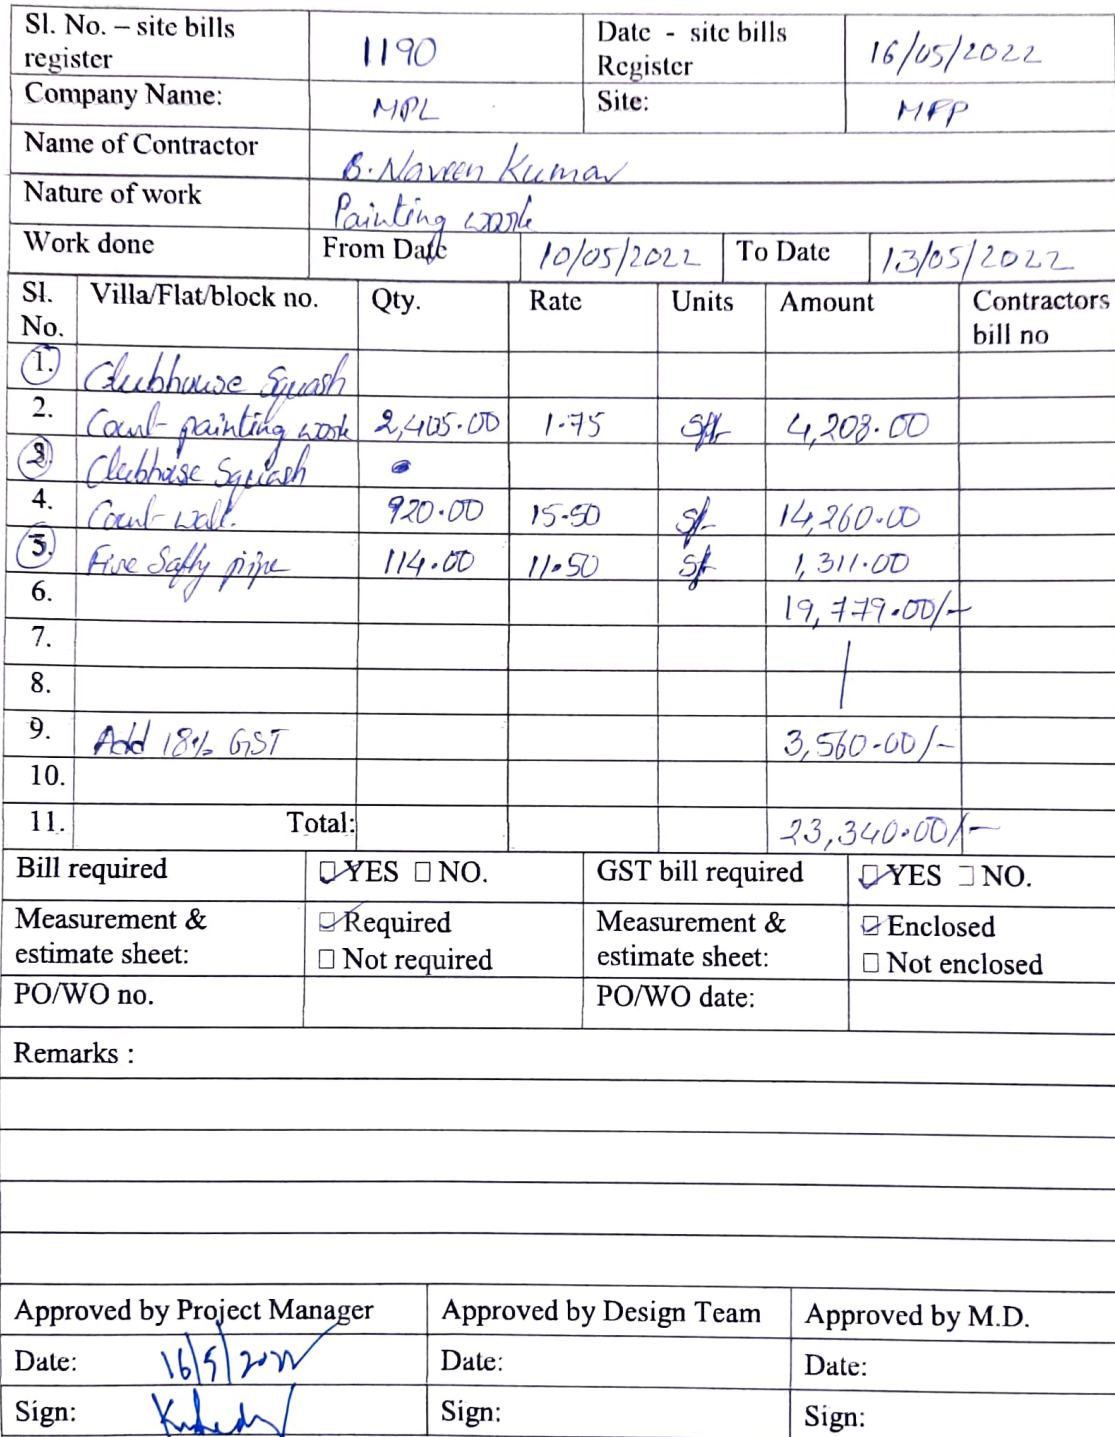 Sl. No. – site bills register 1190 Date - site bills Register 16/05/2022
Company Name: MPL Site: MFP
Name of Contractor B. Naveen Kumar
Nature of work Painting work
Work done From Date 10/05/2022 To Date 13/05/2022
Sl. No. Villa/Flat/block no. Qty. Rate Units Amount Contractors bill no
1. Clubhouse Squash
2. Court painting work 2,405.00 1.75 Sft 4,208.00
3. Clubhouse Squash
4. Court wall. 920.00 15.50 Sft 14,260.00
5. Fire Safty pipe 114.00 11.50 Sft 1,311.00
6. 19,779.00/-
7.
8.
9. Add 18% GST 3,560.00/-
10.
11. Total: 23,340.00/-
Bill required YES NO. GST bill required YES NO.
Measurement & estimate sheet: Required Measurement & estimate sheet: Enclosed
Not required Not enclosed
PO/WO no. PO/WO date:
Remarks :
Approved by Project Manager Approved by Design Team Approved by M.D.
Date: 16/5/2022 Date: Date:
Sign: Sign: Sign: